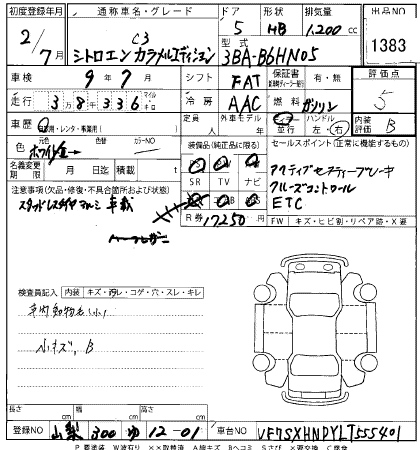 初度登録年月 通称車名・グレード ドア 形状 排気量 出品NO
2/7月 C3 シトロエン カラメルエディション 5 HB 1,200 cc 1383
型式 3BA-B6HN05
車検 9年7月 シフト FAT 保証書 有・無 評価点
走行 38336 マイル キロ 冷房 AAC 燃料 ガソリン 5
車歴 自家用・レンタ・事業用( ) 定員 人 外車モデル 年 並行 ハンドル 左・右 内装評価 B
色 元色 ホワイト 色替 カラーNO 装備品(純正品に限る) セールスポイント(正常に機能するもの)
名義変更期限 月 日迄 積載量 t SR TV ナビ
アクティブセーフティーブレーキ
クルーズコントロール
ETC
注意事項(欠品・修復・不具合箇所および状態)
スタッドレスタイヤ 車載
R券 17250
FW キズ・ヒビ割・リペア跡・X要
検査員記入 内装 キズ・汚レ・コゲ・穴・スレ・キレ
車内動物毛 小
小キズ, B
長さ cm 幅 cm 高さ cm
登録NO 山梨 300 ゆ 12-01 車台NO VF7SXHNPYLT555401
P 要塗装 W波有り XX取替済 A線キズ Bヘコミ Sさび X要交換 C腐食